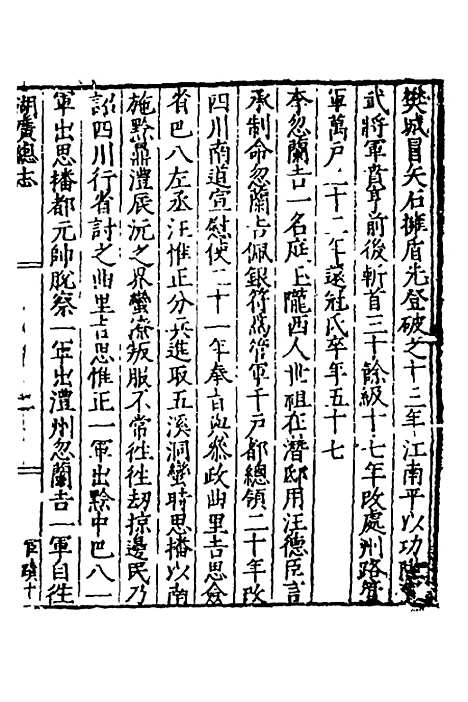 樊城冒矢石擁盾先登破之十三年江南平以功陞
武將軍賁亨前後斬首三十餘級十七年改處州路管
軍萬戶二十二年還冠氏卒年五十七
李忽蘭吉一名庭玉隴西人世祖在潛邸用汪德臣言
承制命忽蘭吉佩銀符爲管軍千戶都總領二十年改
四川南道宣慰使二十一年奉旨與參政曲里吉思僉
省巴八左丞汪惟正分兵進取五溪洞蠻時思播以南
施黔鼎澧辰沅之界蠻獠叛服不常往往劫掠邊民乃
詔四川行省討之曲里吉思惟正一軍出黔中巴八一
軍出思播都元帥脫察一軍出澧州忽蘭吉一軍自往
湖廣總志